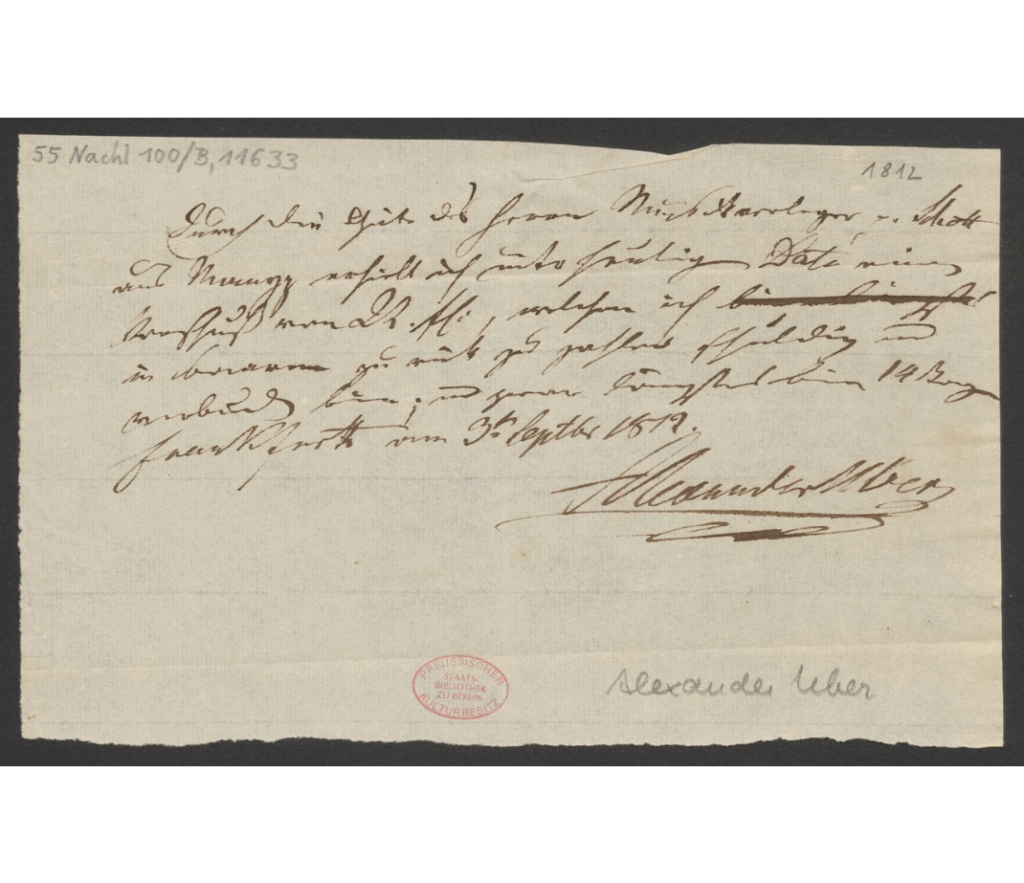 55 Nachl 100/B, 11633
1812
Durch die Güte des Herrn Musikverleger v. Schott
aus Maynz erhielt ich unter heutigem Dato einen
Vorschuß von f:, welchen ich
in baarem zurück zu zahlen schuldig und
verbunden bin, und zwar längstens binn 14 Tag
Frankfurth am 3t Septbr 1812.
Alexander Uber
PREUSSISCHER
STAATS-
BIBLIOTHEK
ZU BERLIN
KULTURBESITZ
Alexander Uber